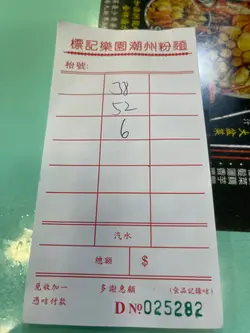 標記樂園潮州粉麵
枱號:
38
52
6
汽水
總額 $
免收加一
憑咭付款
多謝惠顧
(食品記錄咭)
D No 025282
大盆菜